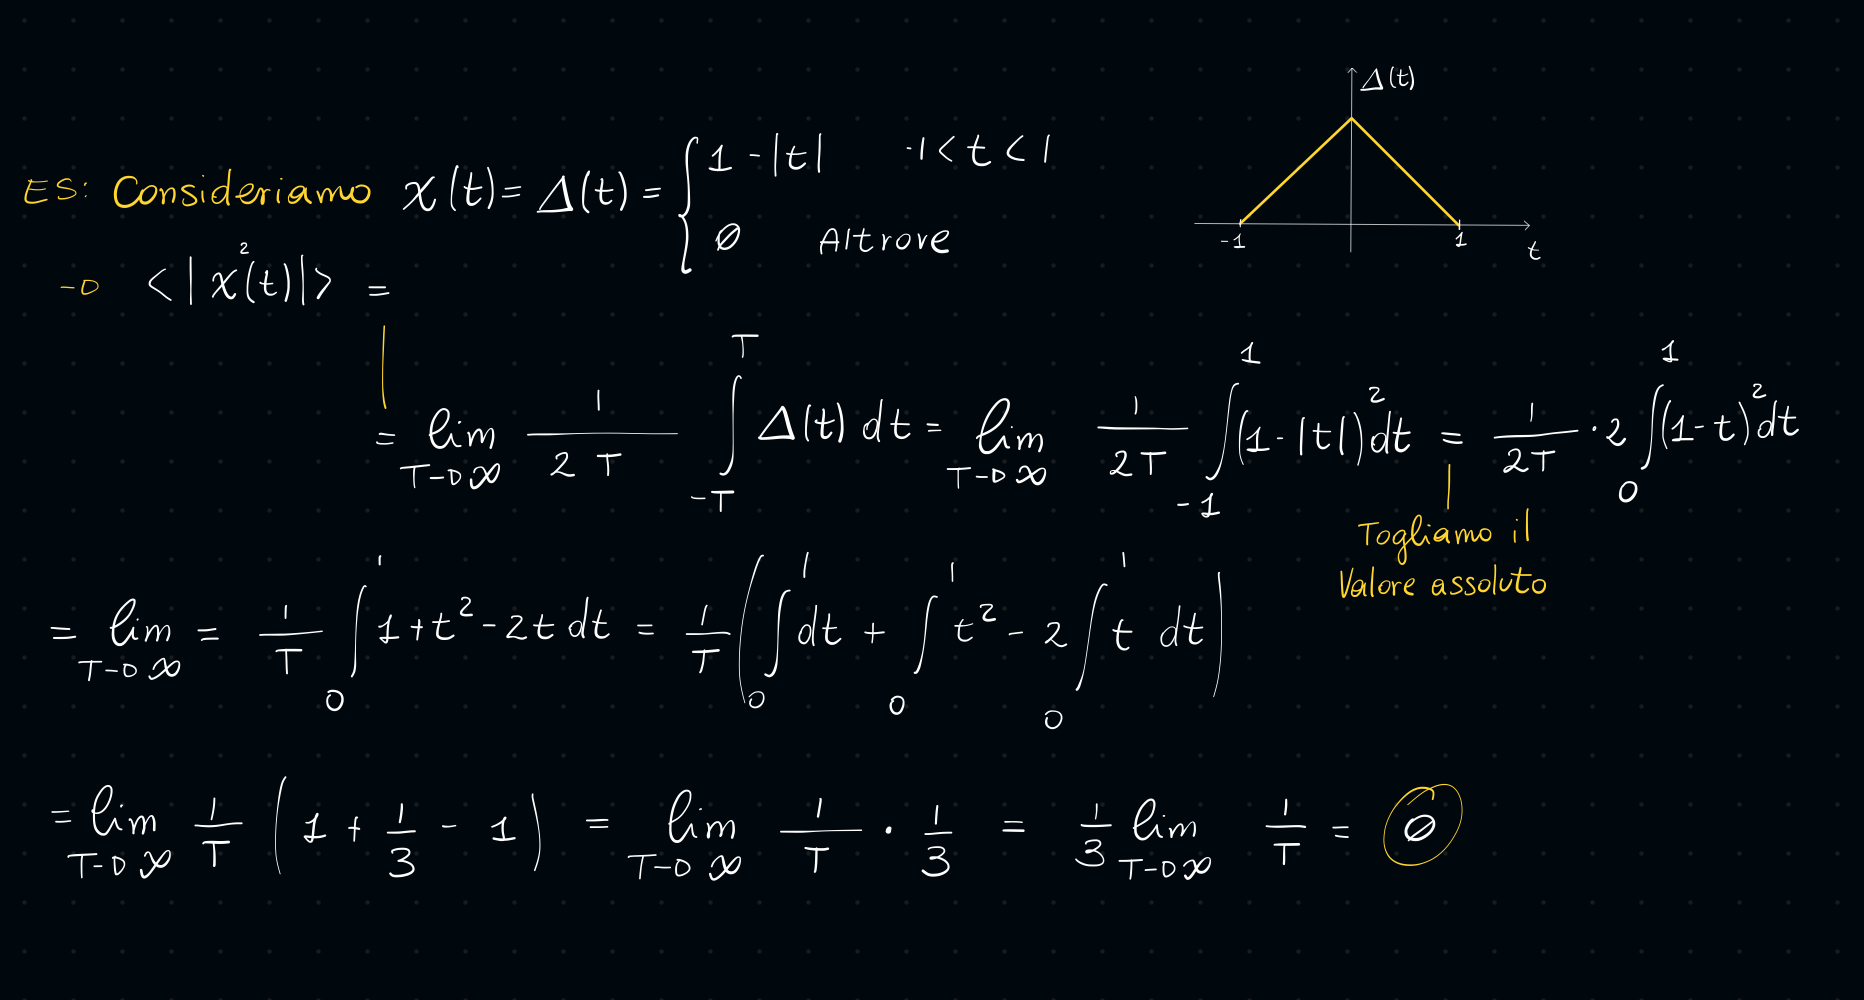 Δ(t)
ES: Consideriamo x(t) = Δ(t) = { 1 - |t|   -1 < t < 1
∅   Altrove
-1   1   t
→ < | x²(t) | > =
= lim T→∞ 1/(2T) ∫_{-T}^{T} Δ(t) dt = lim T→∞ 1/(2T) ∫_{-1}^{1} (1-|t|)² dt = 1/(2T) · 2 ∫_{0}^{1} (1-t)² dt
Togliamo il
Valore assoluto
= lim T→∞ = 1/T ∫_{0}^{1} 1+t²-2t dt = 1/T ( ∫_{0}^{1} dt + ∫_{0}^{1} t² - 2 ∫_{0}^{1} t dt )
= lim T→∞ 1/T ( 1 + 1/3 - 1 ) = lim T→∞ 1/T · 1/3 = 1/3 lim T→∞ 1/T = ∅